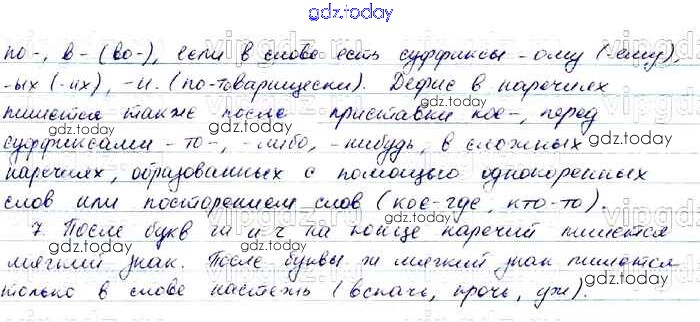 gdz.today
по-, в- (во-), если в слове есть суффиксы -ому (-ему),
-ых (-их), -и. (по-товарищески). Дефис в наречиях
пишется также после приставки кое-, перед
суффиксами -то-, -либо, -нибудь, в сложных
наречиях, образованных с помощью однокоренных
слов или повторением слов (кое-где, кто-то).
7. После букв ш и ч на конце наречий пишется
мягкий знак. После буквы ж мягкий знак пишется
только в слове настежь (вспачь, прочь, уж).